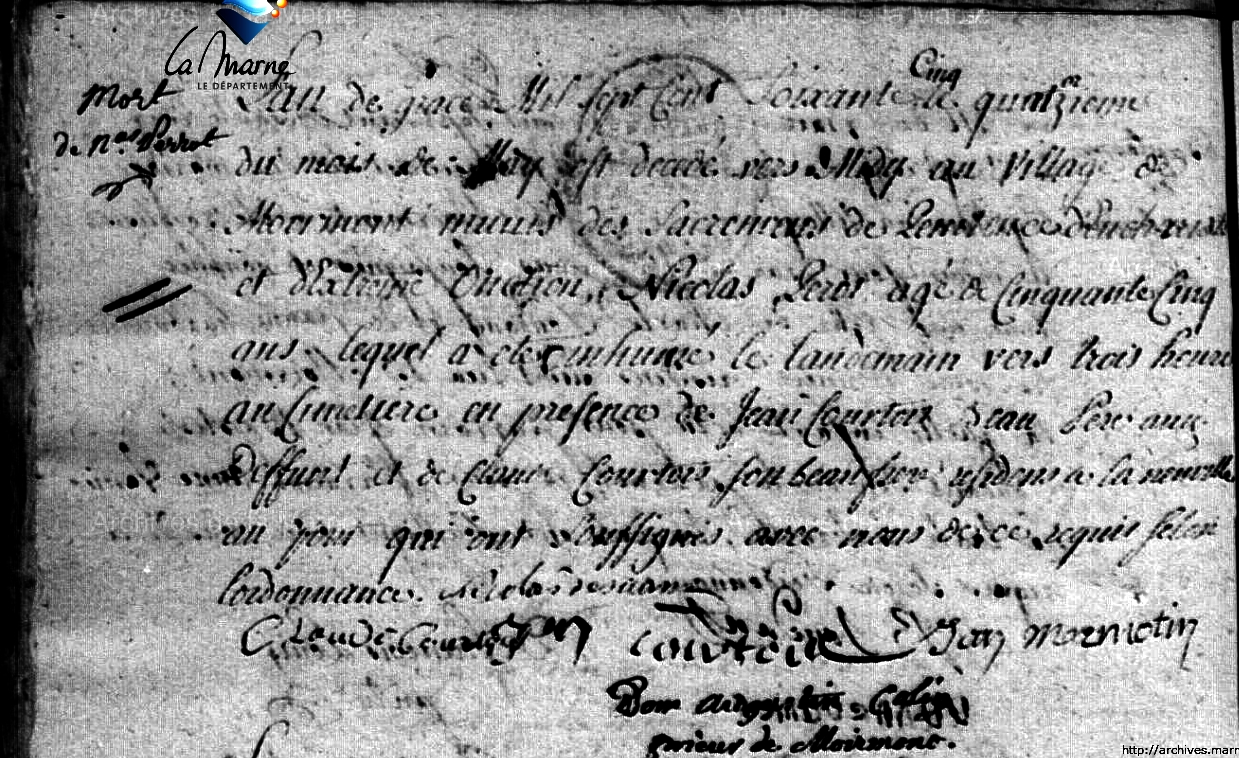 Archives de la Marne
Archives de la Marne
La Marne
LE DÉPARTEMENT
Mort
de n.as Perrot
Cinq
L'an de grace Mil Sept Cent Soixante le quatrzieme
du mois de May est decedé vers Midy au Village de
Moirmont munis des Sacremens de Penitence d'Eucharistie
et d'Extreme Onction, Nicolas agé de Cinquante Cinq
ans lequel a eté inhumé le landemain vers trois heure
au Cimetiere en presence de Jean Courtois
deffunt et de Claude Courtois son beau frere residens a la neuville
au qui ont Soussignés avec nous de ce requis selon
lordonnance.
Claude Courtois
Courtois
Jean mormotin
Dom Augustin
prieur de Moiremont.
Archives de
Archives de la Marne
http://archives.marn